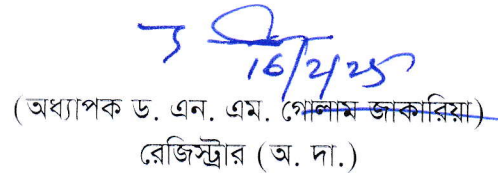 16/2/25
(অধ্যাপক ড. এন. এম. গোলাম জাকারিয়া)
রেজিস্ট্রার (অ. দা.)